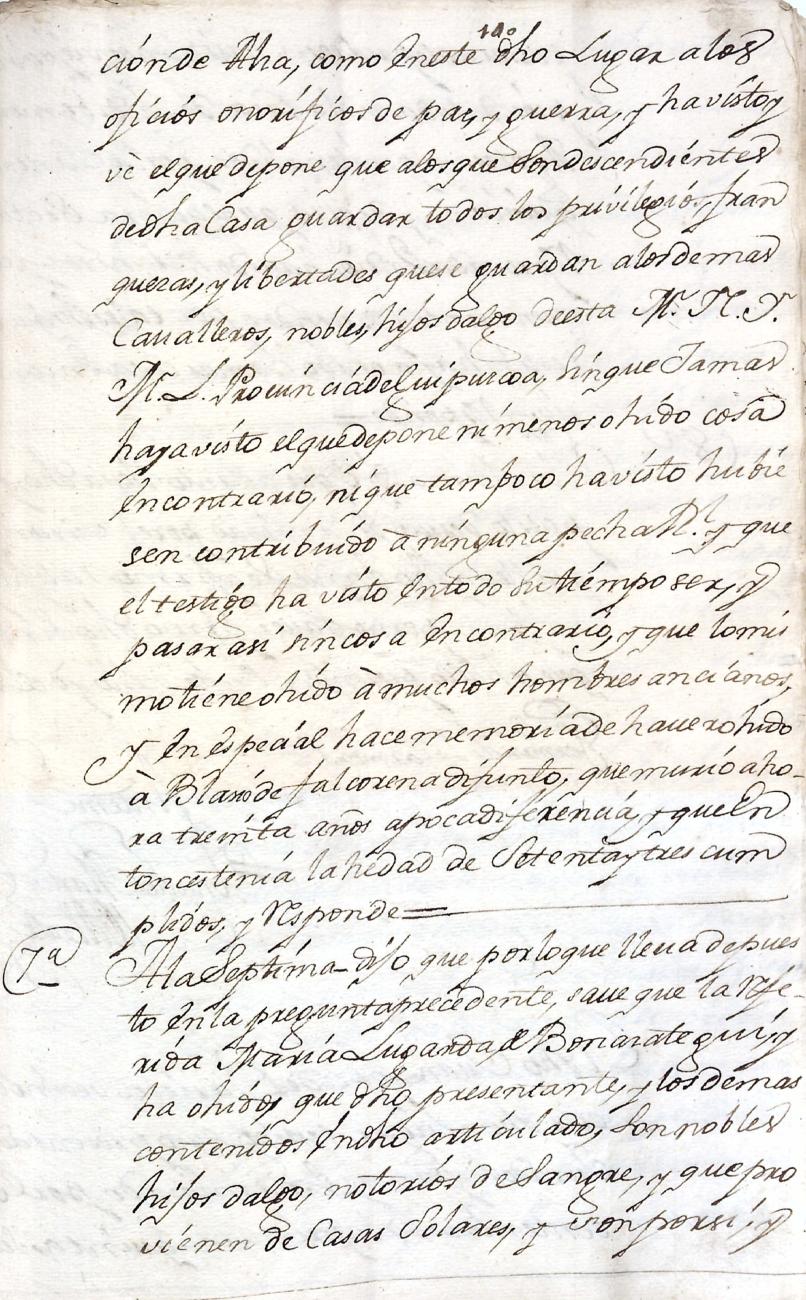 110
ción de Alza, como en este dho Lugar a los
oficios onorificos de paz, y guerra, y ha visto y
vè el que depone que a los que son descendientes
de dha Casa guardar todos los privilegios, fran
quezas, y libertades que se guardan a los demas
Cavalleros, nobles, hijos dalgo de esta M. N. Y.
M. L. Provincia de Guipuzcoa, sin que Jamas
haya visto el que depone ni menos ohido cosa
en contrario, ni que tampoco ha visto hubie
sen contribuido à ninguna pecha Rl. y que
el testigo ha visto en todo su tiempo ser, y
pasar asi sin cosa en contrario, y que lo mis
mo tiene ohido à muchos hombres ancianos,
y en especial hace memoria de haver ohido
à Blas de falcorena difunto, que murio aho-
ra treinta años a poca diferencia, y que en
tonces tenia la hedad de Setenta y tres cum
plidos, y responde=
7a A la Septima dijo que por lo que lleva depues
to en la pregunta precedente, save que la refe-
rida Maria Lugarda de Beriarategui, y
ha ohido, que dho presentante, y los demas
contenidos en dho articulado, son nobles
hijos dalgo, notorios de Sangre, y que pro
vienen de Casas Solares, y son por si, y